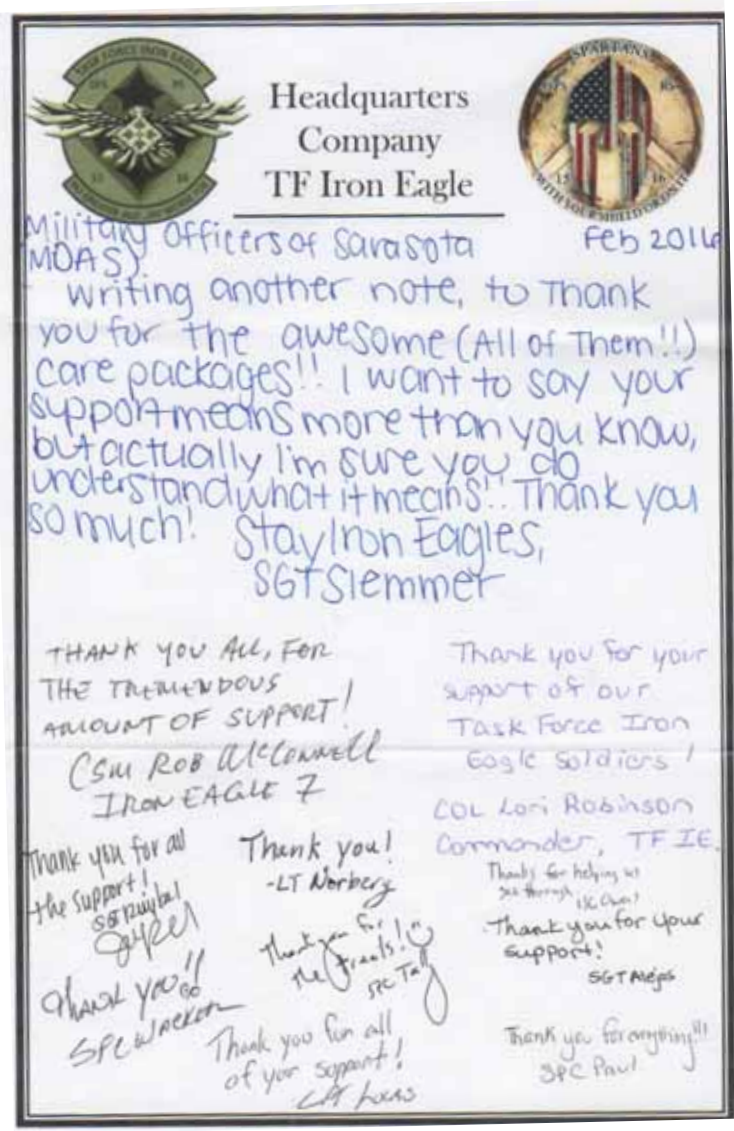 TASK FORCE IRON EAGLE
SPARTANS
15 16
WITH YOUR SHIELD OR ON IT
Headquarters
Company
TF Iron Eagle
Military Officers of Sarasota
Feb 2016
MOAS).
Writing another note, to Thank
you for the awesome (All of Them!!)
care packages!! I want to say your
support means more than you know,
but actually I'm sure you do
understand what it means!! Thank you
so much! Stay Iron Eagles,
SGT Slemmer
THANK YOU ALL, FOR
THE TREMENDOUS
AMOUNT OF SUPPORT!
CSM ROB McCONNELL
IRON EAGLE 7
Thank you for your
support of our
Task Force Iron
Eagle Soldiers!
COL Lori Robinson
Commander, TF IE.
Thank you for all
the support!
Thank you!
-LT Norberg
Thanks for helping us
see through
Thank you for
the treats!
SPC
Thank you for your
support!
SGT
THANK YOU!!
SPC
Thank you for all
of your support!
Thank you for everything!!!
SPC Paul